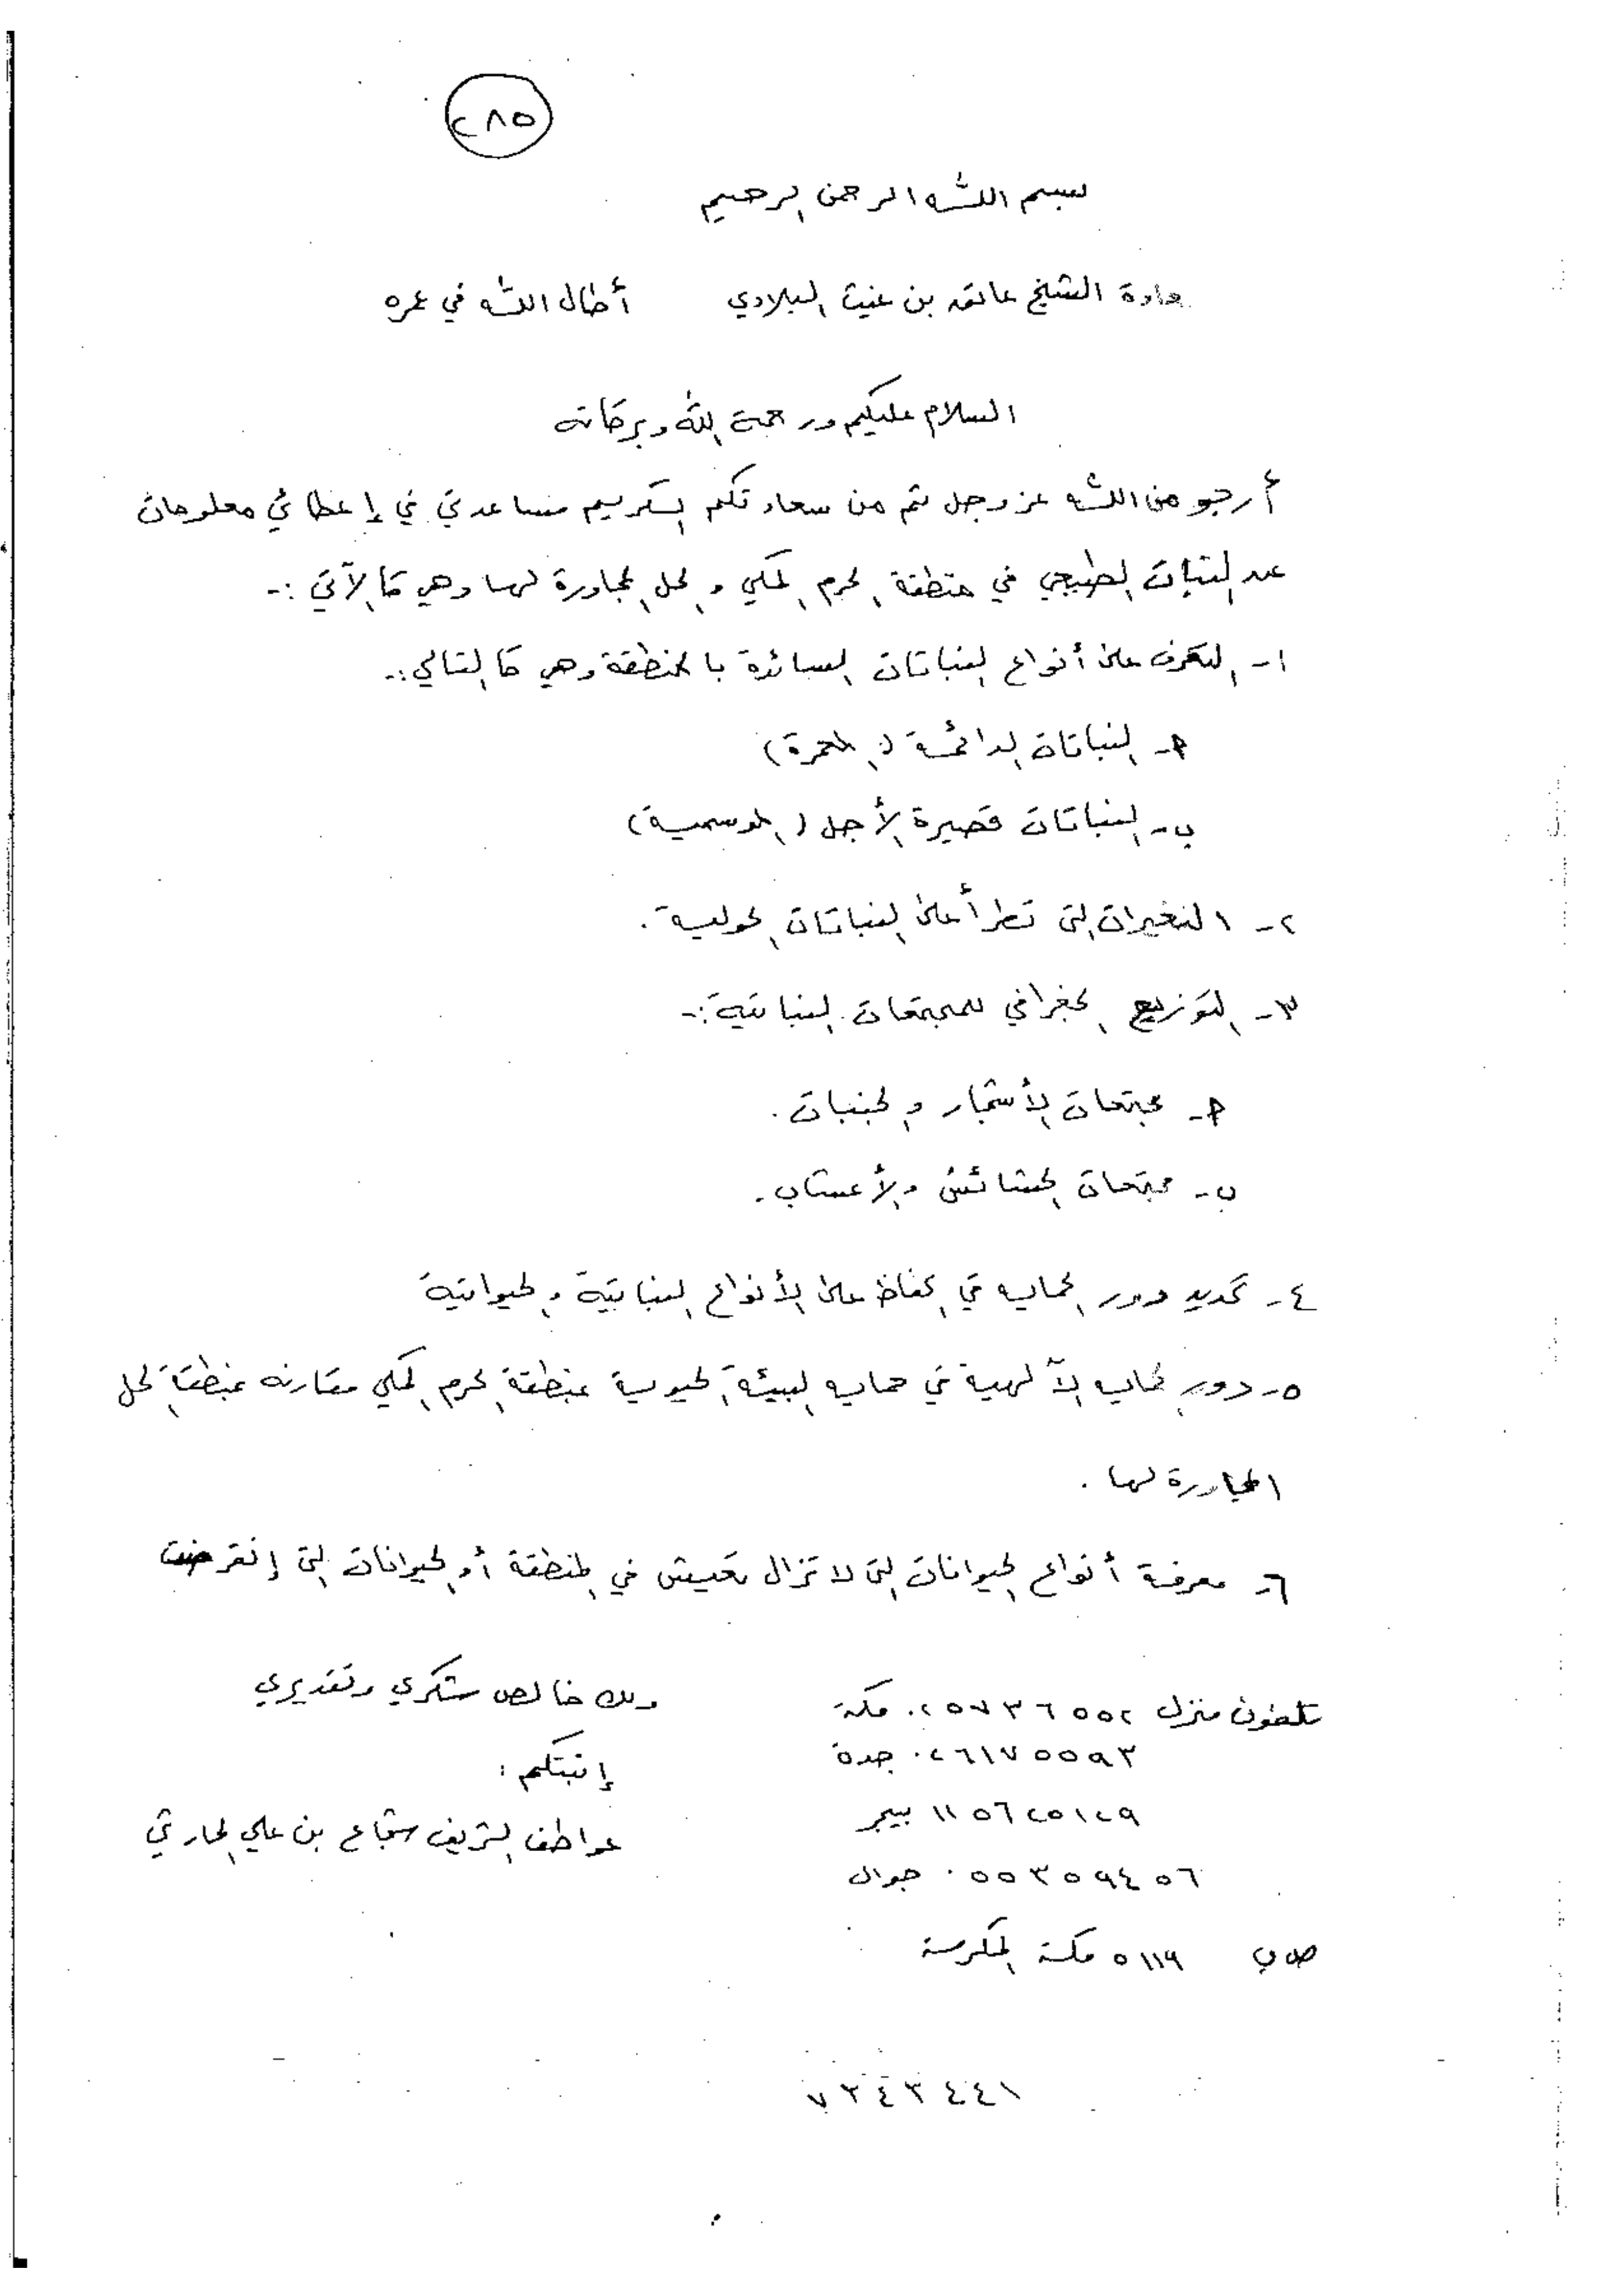 ٢٨٥
بسم الله الرحمن الرحيم
عادة الشيخ عاتق بن غيث البلادي أطال الله في عمره
السلام عليكم ورحمة الله وبركاته
أرجو من الله عز وجل ثم من سعادتكم الكريم مساعدتي في إعطائي معلومات
عن النبات الطبيعي في منطقة الحرم المكي والحل المجاورة لها وهي كالآتي :-
١- التعرف على أنواع النباتات السائدة بالمنطقة وهي كالتالي :-
أ- النباتات الدائمة (المعمرة)
ب- النباتات قصيرة الأجل (الموسمية)
٢- التغيرات التي تطرأ على النباتات الحولية .
٣- التوزيع الجغرافي للمجتمعات النباتية :-
أ- مجتمعات الأشجار والجنبات .
ب- مجتمعات الحشائش والأعشاب .
٤- تحديد دور الحمايه في الحفاظ على الأنواع النباتية والحيوانية
٥- دور الحمايه الآلهية في حمايه البيئة الحيوية بمنطقة الحرم المكي مقارنه بمنطقة الحل
المجاورة لها .
٦- معرفة أنواع الحيوانات التي لا تزال تعيش في المنطقة أو الحيوانات التي إنقرضت
ولك خالص شكري وتقديري
إبنتكم :
عواطف الشريف شجاع بن علي الحارثي
تلفون منزل ٠٢٥٧٣٦٥٥٢ مكة
٠٢٦١٧٥٥٩٣ جدة
١١٥٦٢٥١٢٩ بيجر
٠٥٥٣٥٩٤٥٦ جوال
ص ب ٥١١٩ مكة المكرمة
٧٣٤٣٤٤١